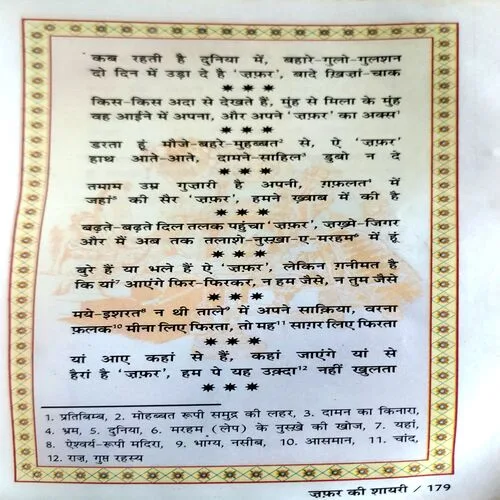 कब रहती है दुनिया में, बहारे-गुलो-गुलशन
दो दिन में उड़ा दे है ‘ज़फ़र’, बादे ख़िज़ां-चाक
किस-किस अदा से देखते हैं, मुंह से मिला के मुंह
वह आईने में अपना, और अपने ‘ज़फ़र’ का अक्स¹
डरता हूं मौजे-बहरे-मुहब्बत² से, ऐ ‘ज़फ़र’
हाथ आते-आते, दामने-साहिल³ डुबो न दे
तमाम उम्र गुज़ारी है अपनी, ग़फ़लत⁴ में
जहां⁵ की सैर ‘ज़फ़र’, हमने ख़्वाब में की है
बढ़ते-बढ़ते दिल तलक पहुंचा ‘ज़फ़र’, ज़ख़्मे-जिगर
और मैं अब तक तलाशे-नुस्ख़ा-ए-मरहम⁶ में हूं
बुरे हैं या भले हैं ऐ ‘ज़फ़र’, लेकिन ग़नीमत है
कि यां⁷ आएंगे फिर-फिरकर, न हम जैसे, न तुम जैसे
मये-इशरत⁸ न थी ताले⁹ में अपने साक़िया, वरना
फ़लक¹⁰ मीना लिए फिरता, तो मह¹¹ साग़र लिए फिरता
यां आए कहां से हैं, कहां जाएंगे यां से
हैरां है ‘ज़फ़र’, हम पे यह उक़्दा¹² नहीं खुलता
1. प्रतिबिम्ब, 2. मोहब्बत रूपी समुद्र की लहर, 3. दामन का किनारा,
4. भ्रम, 5. दुनिया, 6. मरहम (लेप) के नुस्ख़े की खोज, 7. यहां,
8. ऐश्वर्य-रूपी मदिरा, 9. भाग्य, नसीब, 10. आसमान, 11. चांद,
12. राज़, गुप्त रहस्य
ज़फ़र की शायरी / 179